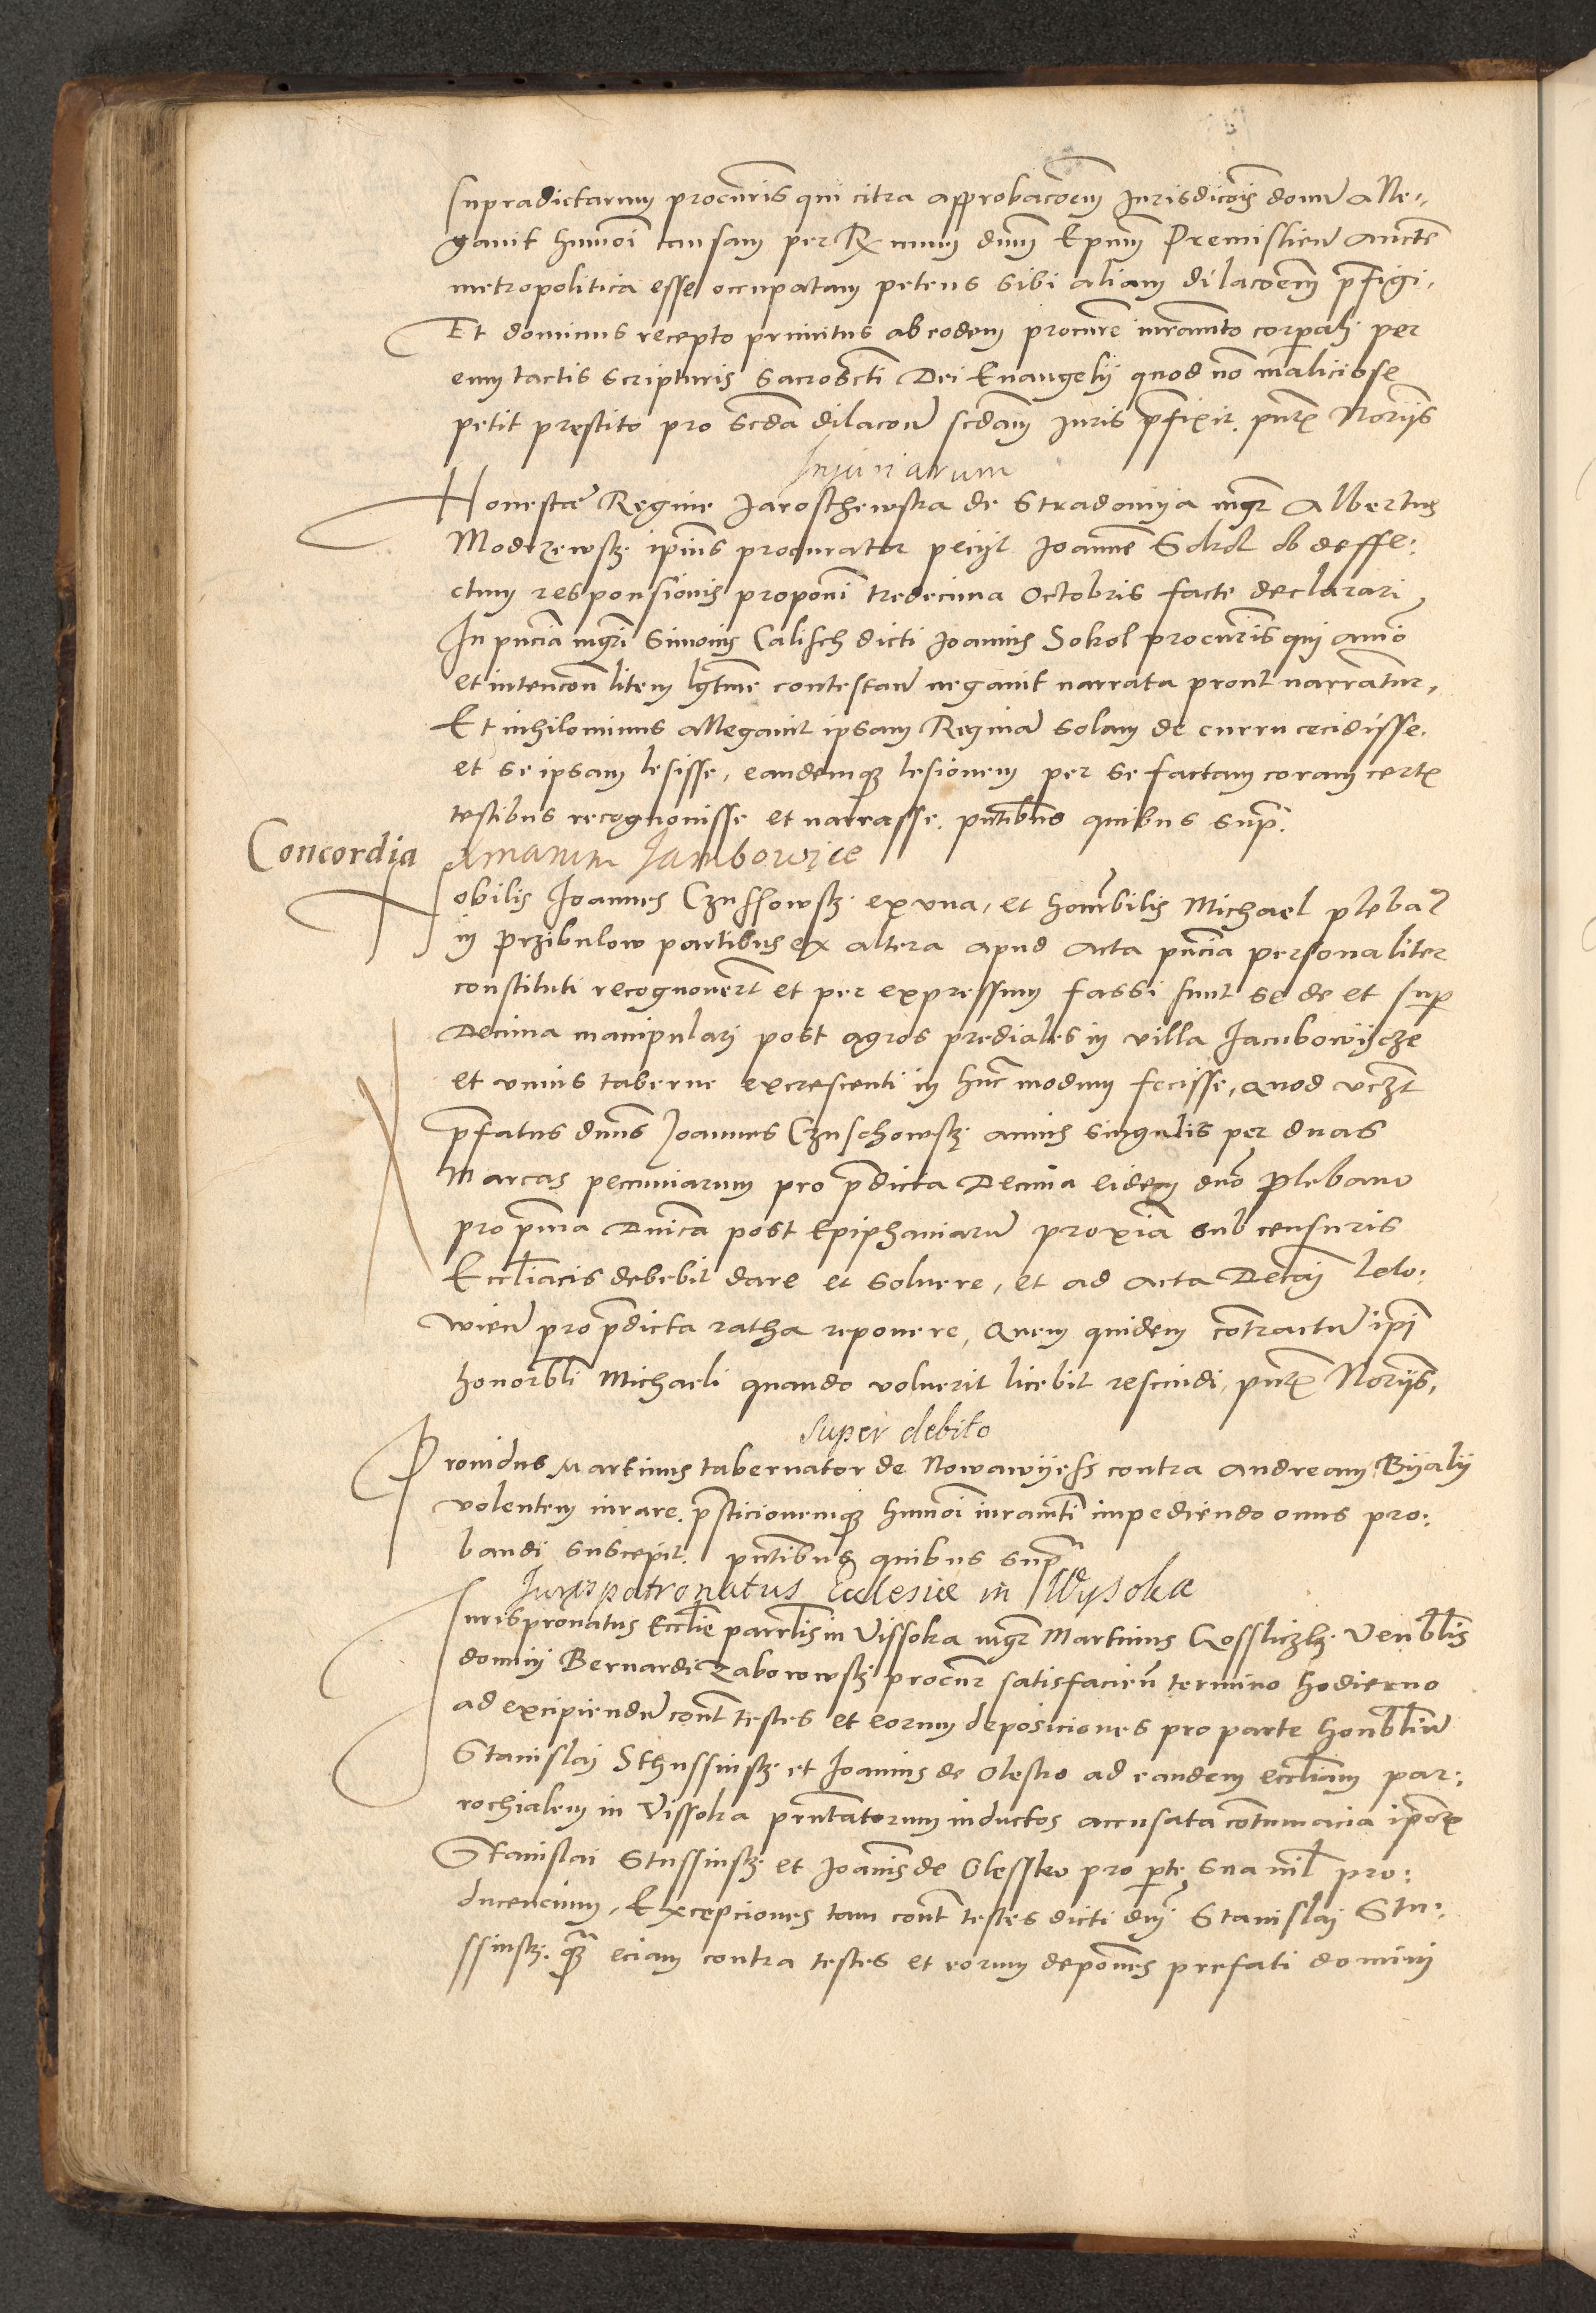 supradictarum procūris qui citra approbacōem Jurisdicōis domī Alle-
gavit hmōi causam per Rx mum dnūm Epūm Premislien Aucte
metropolitica esse occupatam petens sibi aliam dilacōem pfigi.
Et dominus recepto primitus ab eodem procūre iuramto corporali per
eum tactis scripturis sacroscti Dei Evangelij quod nō maliciose
petit prestito pro scda dilacōe scdam Juris pfixit. pntē Norijs
Injuriarum
Honestę Regine Jaroschewska de Stradomya mgr Albertus
Modrzewskj ipīus procurator pecijt Joannē Sokol ob deffe:
ctum responsionis proponi tredecima Octobris facte declarari,
In pncia mgri Simonis Calisch dicti Joannis Sokol procūris qui animo
et intencōn litem lgtme contestan negavit narrata prout narrantur,
Et nihilominus allegavit ipsam Reginā solam de curru cecidisse.
et se ipsam lesisse, eandemq lesionem per se factam coram certis
testibus recognovisse et narrasse. pntibus quibus supra.
Concordia
Decimarum Jambowice
Nobilis Joannes Czussowskj ex una, et honorabilis Michael pleban
in Przibulow partibus ex altera apud Acta pncia personaliter
constituti recognovert et per expressum fassi sunt se de et sup
Decima manipulari post agros prediales in villa Jacubowijcze
et unius taberne excrescenti in hunc modum fecisse, quod vczt
pfatus dnūs Joannes Czuschowskj annis singulis per duas
Marcas pecuniarum pro pdicta Decima eidem dno Plebano
pro pma Dnica post Epiphaniarū proximā sub censuris
Eccliacis debebit dare et solvere, et ad Acta Decaj Lelo:
wien pro pdicta ratha reponere, Quem quidem contractū ipsi
honorbli Michaeli quando voluerit licebit rescindi, pntē Norijs,
super debito
Providus Martinus tabernator de Nowawyess contra Andream Byaly
volentem iurare, pstticionemq hmōi iuramti impediendo onus pro:
bandi suscepit. pntibus quibus supra
Jurispatronatus Ecclesiæ in Wysoka
Jurisprōnatus Ecclie parrclis in Vissoka mgr Martinus Gossliczky Venblis
domini Bernardi Zaborowskj procūr satisfacien termino hodierno
ad excipiendū cont testes et eorum deposiciones pro parte honblium
Stanislaj Sthussinskj et Joannis de Olesko ad eandem eccliam par:
rochialem in Vissoka pntatorum inductos accusata contumacia ipōr
Stanislai Stussinskj et Joānis de Olessko pro pte sua nil pro:
ducencium, Excepciones tam cont testes dicti dnj Stanislaj Stu:
ssinskj. q eciam contra testes et eorum deponēs prefati domini